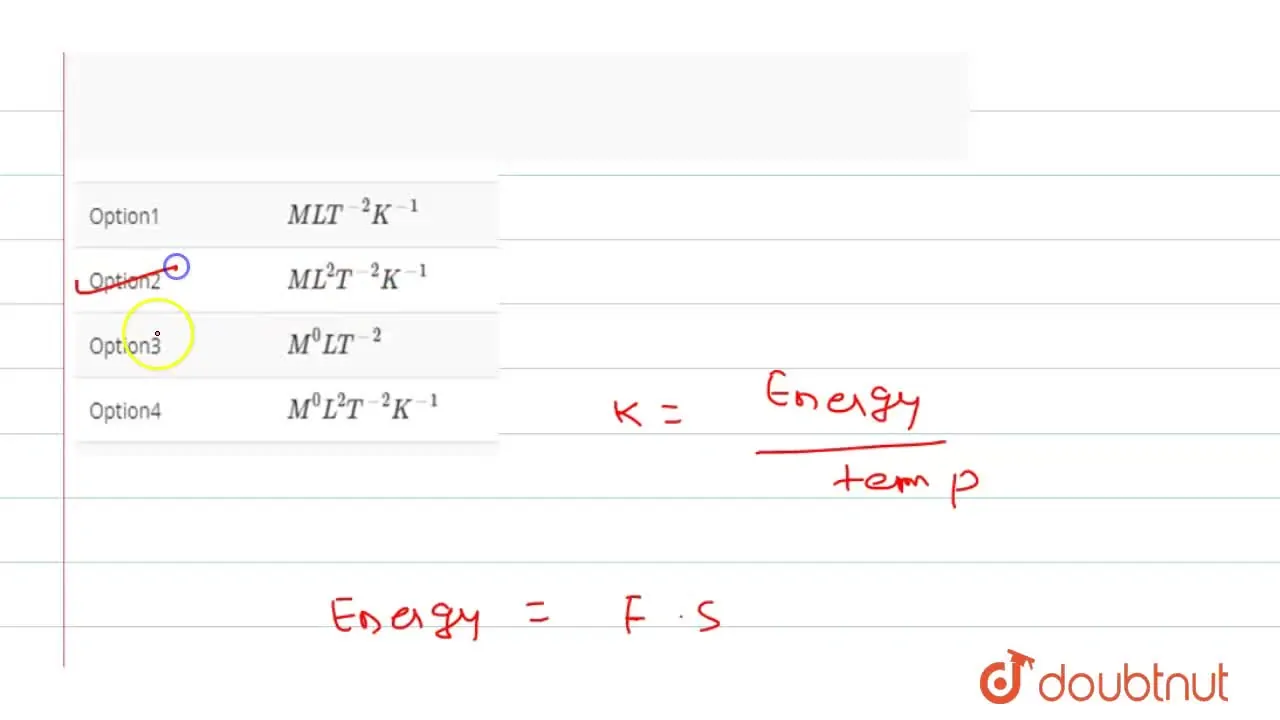 Option1 MLT⁻²K⁻¹
Option2 ML²T⁻²K⁻¹
Option3 M⁰LT⁻²
Option4 M⁰L²T⁻²K⁻¹
K = Energy
temp
Energy = F . S
doubtnut